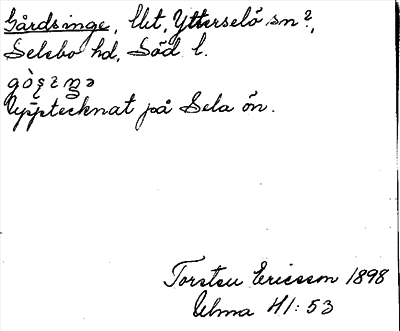 Gårdsinge, Utt, Ytterselö sn?,
Selebo hd, Söd l.
Upptecknat på Sela ön.
Torsten Ericsson 1898
Ulma 41:53